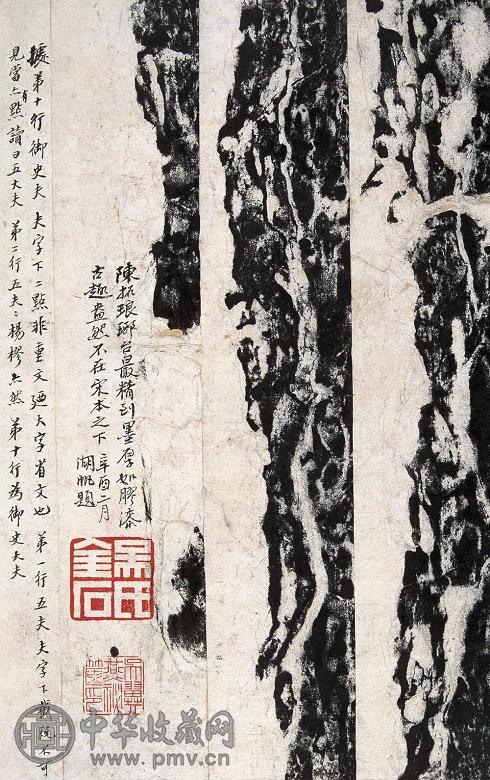 陳拓琅琊台最精到墨厚如膠漆
古趣盎然不在宋本之下 辛酉二月
湖帆題
吳氏金石
吳翼燕祕笈印
據第十行御史夫 夫字下二點非重文廼大字省文也 第一行五夫夫字下截既不可
見當亦有點讀曰五大夫 第二行五夫〻楊樛亦然 第十行為御史大夫
中华收藏网
www.pmv.cn